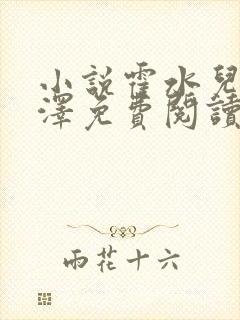 小說霍水兒
澤免費閱讀
雨花十六